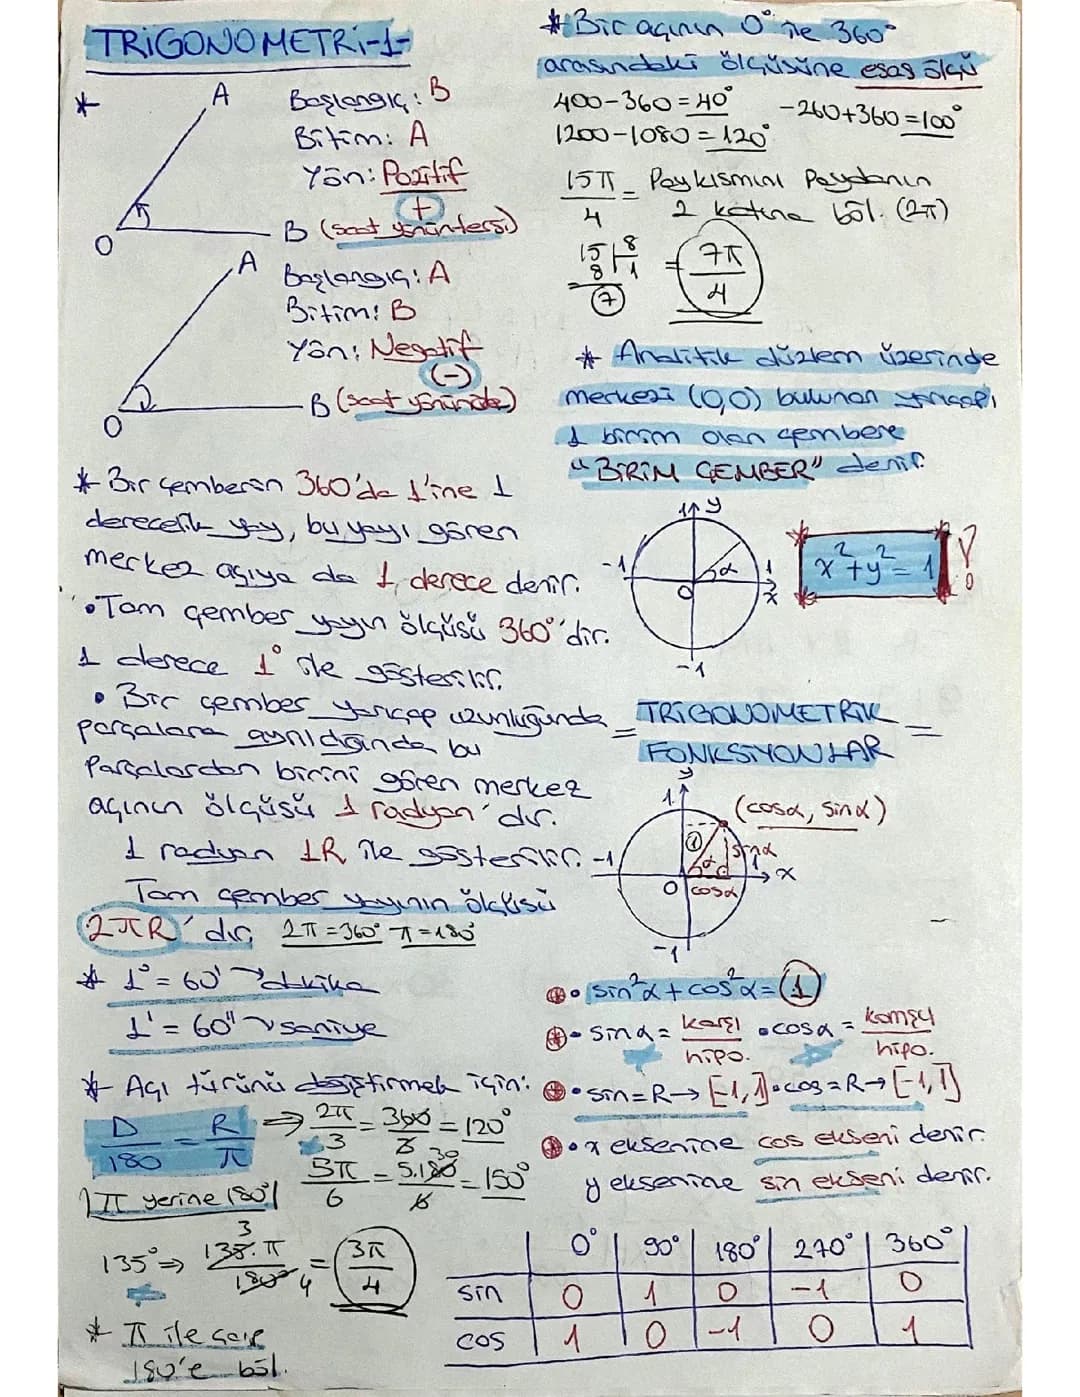 TRİGONOMETRİ-1-
* A
Başlangıç: B
Bitim: A
Yön: Pozitif
+
O B (saat yönün tersi)
A
Başlangıç: A
Bitim: B
Yön: Negatif
(-)
O B (saat yönünde)
* Bir çemberin 360'da 1'ine 1
derecelik yay, bu yayı gören
merkez açıya da 1 derece denir.
• Tam çember yayın ölçüsü 360°'dir.
1 derece 1° ile gösterilir.
• Bir çember yarıçap uzunluğunda
parçalara ayrıldığında bu
parçalardan birini gören merkez
açının ölçüsü 1 radyan'dır.
1 radyan 1R ile gösterilir.
Tam çember yayının ölçüsü
2πR'dir, 2π=360° π=180°
* 1°=60' → dakika
1'=60'' → saniye
* Açı türünü değiştirmek için:
D/180 = R/π ⇒ 2π/3 = 360/3 = 120°
π yerine 180°
5π/6 = 5.180/6 = 150° 30
135° ⇒ 135.π/180° = 3π/4
3
4
* π ile çarp
180'e böl.
* Bir açının 0° ile 360°
arasındaki ölçüsüne esas ölçü
400-360=40° -260+360=100°
1200-1080=120°
15π/4 = Pay kısmını paydanın
2 katına böl. (2π)
15 | 8
8 | 1
7
= 7π/4
* Analitik düzlem üzerinde
merkezi (0,0) bulunan yarıçapı
1 birim olan çembere
"BİRİM ÇEMBER" denir.
1 y
-1 O α 1 x
-1
x²+y²=1 !
= TRİGONOMETRİK =
FONKSİYONLAR
y
1 (cosα, sinα)
1 sinα
-1 α x
O cosα
-1
• sin²α+cos²α=1
• sinα = karşı/hipo. • cosα = komşu/hipo.
• sin=R→[-1,1] • cos=R→[-1,1]
• x eksenine cos ekseni denir.
y eksenine sin ekseni denir.
0° 90° 180° 270° 360°
sin 0 1 0 -1 0
cos 1 0 -1 0 1